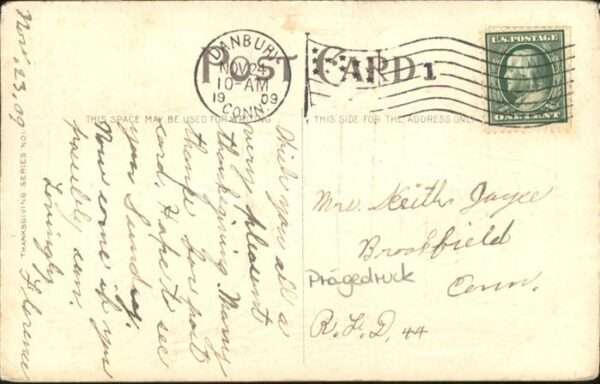 Nov. 23, 09
THANKSGIVING SERIES NO.
POST CARD
DANBURY
NOV 24
10-AM
19 09
CONN.
1
U.S. POSTAGE
ONE CENT
THIS SPACE MAY BE USED FOR
THIS SIDE FOR THE ADDRESS ONLY
Wish you all a
very pleasant
thanksgiving. Many
thanks for post
card. Hope to see
you Sunday.
Now come if you
possibly can.
Lovingly
Florence
Mrs. Keith Joyce
Brookfield
Prägedruck
Conn.
R.F.D. 44